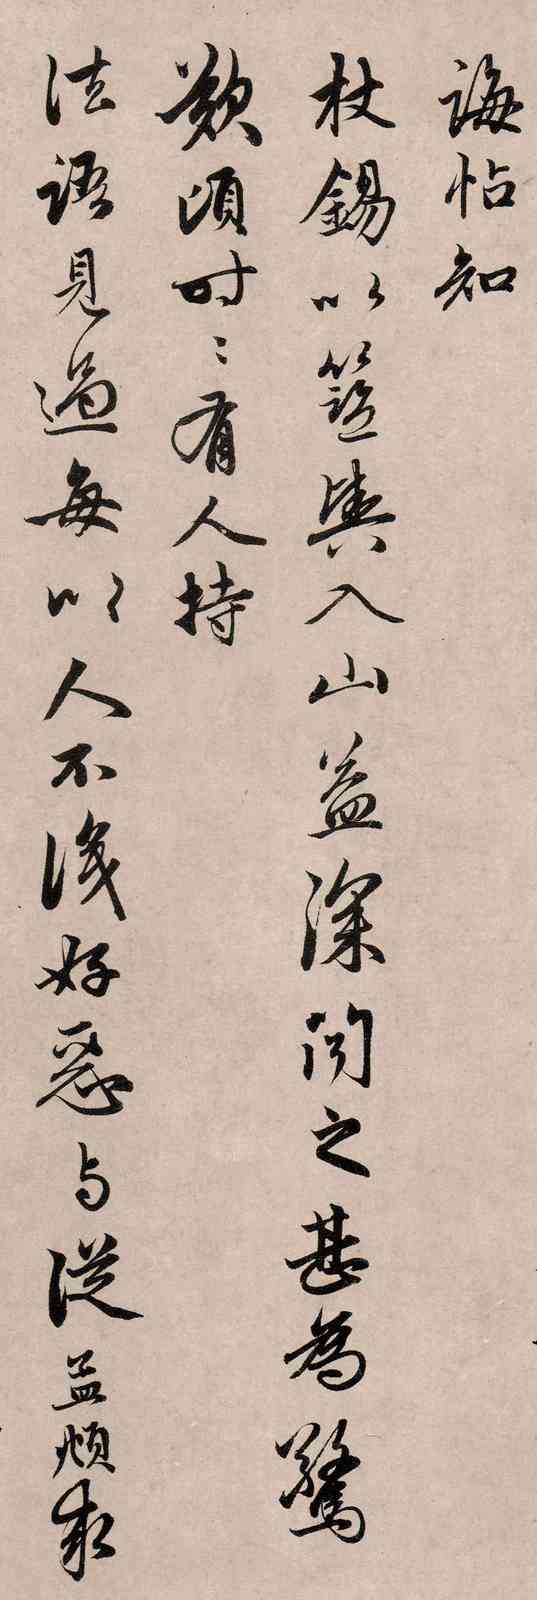 誨帖知
杖錫以籃輿入山益深聞之甚為驚
歎頃时〻有人持
法語見過每以人不識好惡与從孟頫求